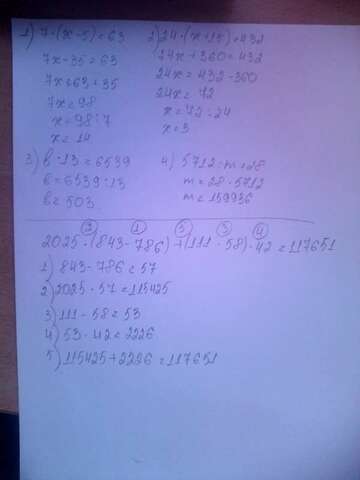 1) 7·(x-5)=63
7x-35=63
7x=63+35
7x=98
x=98:7
x=14
2) 24·(x+15)=432
24x+360=432
24x=432-360
24x=72
x=72:24
x=3
3) в·13=6539
в=6539:13
в=503
4) 5712:m=28
m=28·5712
m=159936
2 1 5 3 4
2025·(843-786)+(111-58)·42=117651
1) 843-786=57
2) 2025·57=115425
3) 111-58=53
4) 53·42=2226
5) 115425+2226=117651